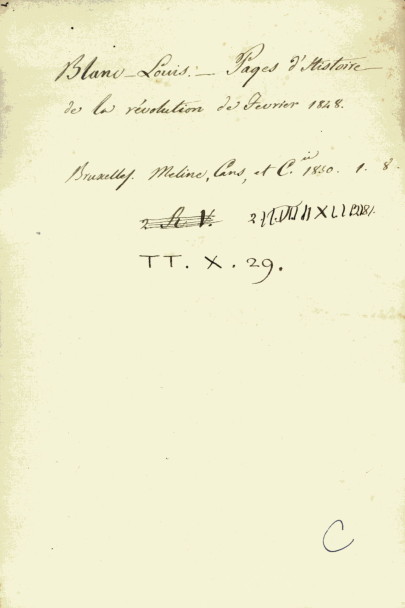 Blanc-Louis.- Pages d'Histoire
de la révolution de Fevrier 1848.
Bruxelles. Meline, Cans, et C.ie 1850. 1. 8.
TT. X. 29.
C